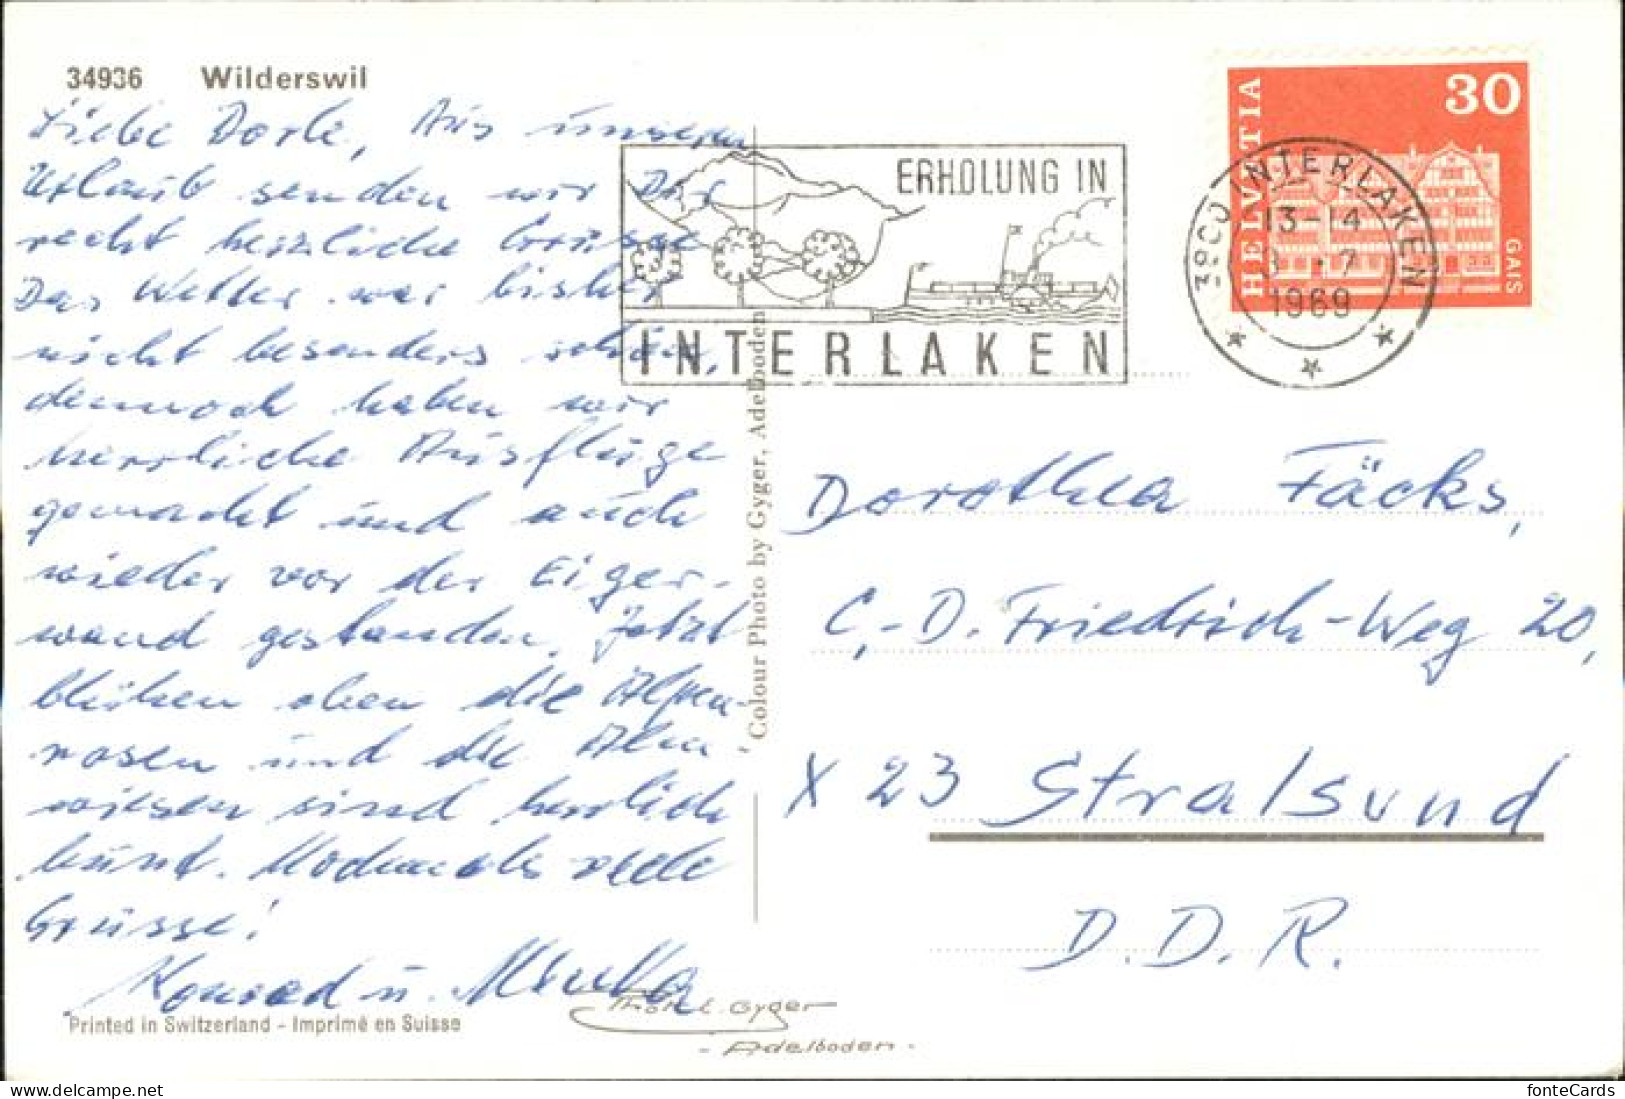 34936 Wilderswil
Liebe Dorle, Aus unserem
Urlaub senden wir Dir
recht herzliche Grüsse
Das Wetter war bisher
nicht besonders schön,
dennoch haben wir
herrliche Ausflüge
gemacht und auch
wieder vor der Eiger-
wand gestanden. Jetzt
blühen oben die Alpen-
rosen und die Alm-
wiesen sind herrlich
bunt. Nochmals viele
Grüsse!
Konrad u.
Printed in Switzerland - Imprimé en Suisse
Colour Photo by Gyger, Adelboden
Gyger
- Adelboden -
ERHOLUNG IN
INTERLAKEN
3800 INTERLAKEN
13-14
7
1969
HELVETIA
30
GAIS
Dorothea Fäcks,
C.-D. Friedrich-Weg 20,
X 23 Stralsund
D. D. R.
fonteCards